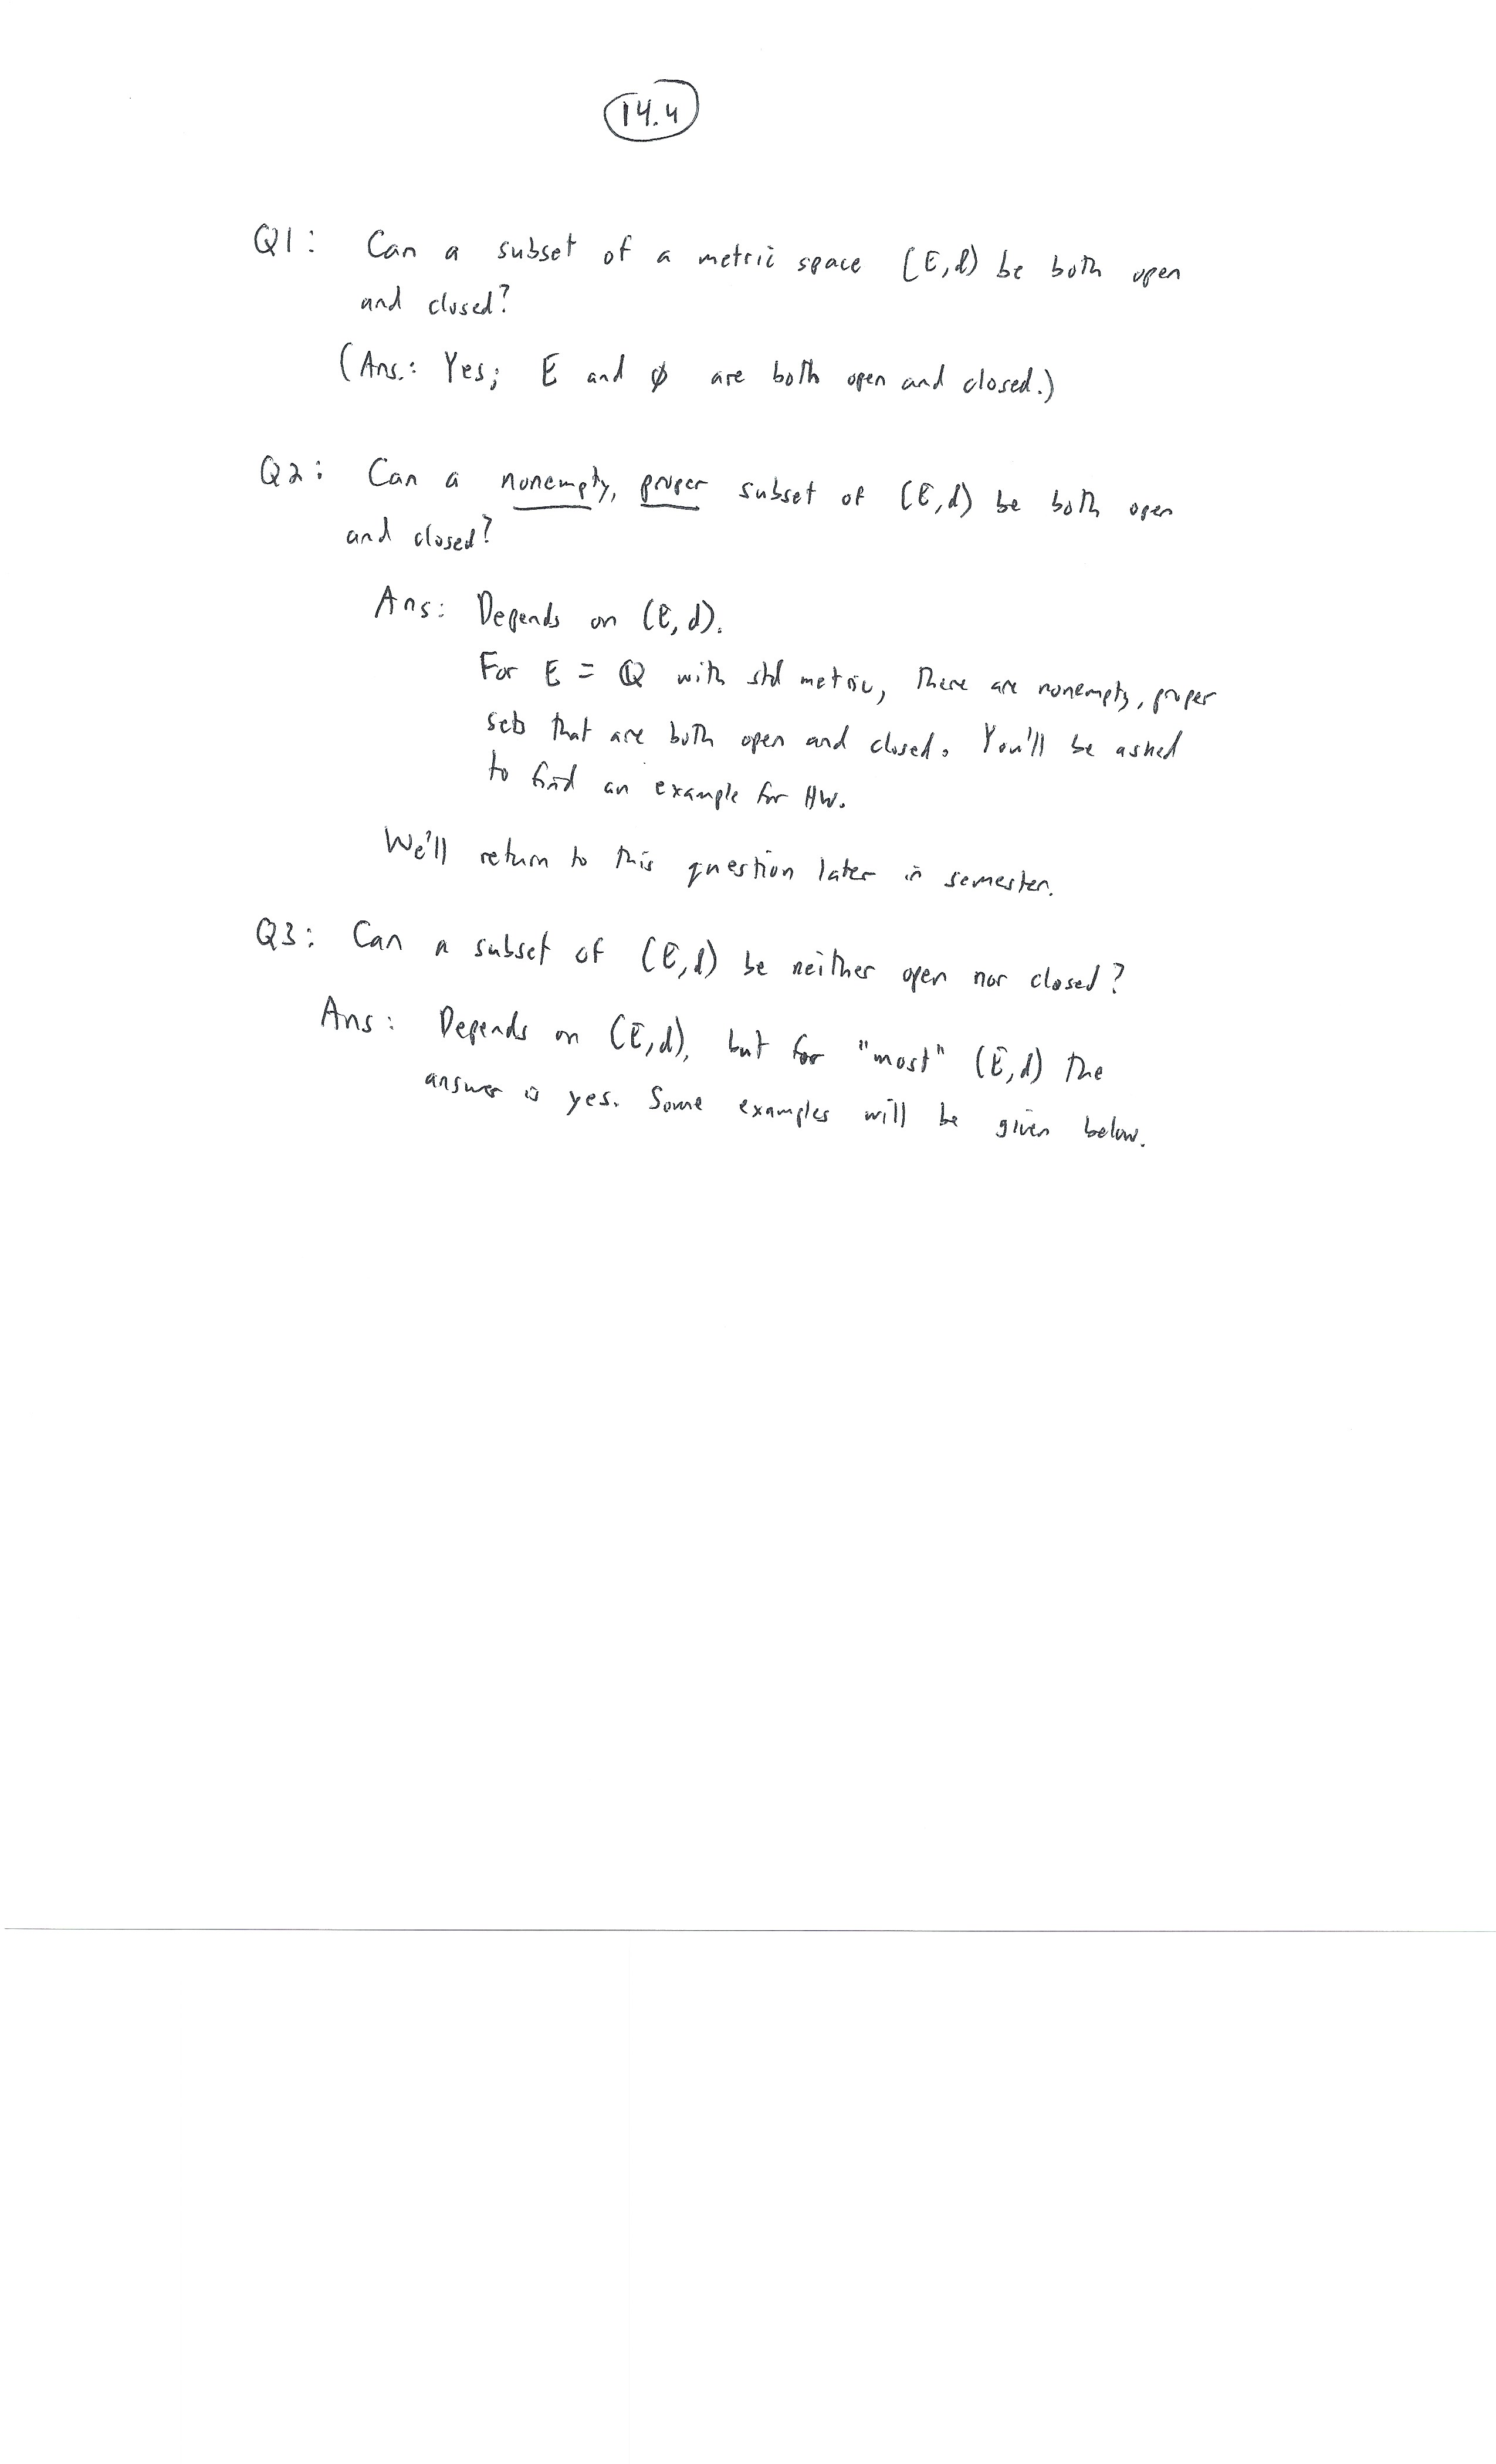 14.4
Q1: Can a subset of a metric space (E,d) be both open
and closed?
(Ans.: Yes; E and ∅ are both open and closed.)
Q2: Can a nonempty, proper subset of (E,d) be both open
and closed?
Ans: Depends on (E,d).
For E = ℚ with std metric, there are nonempty, proper
sets that are both open and closed. You'll be asked
to find an example for HW.
We'll return to this question later in semester.
Q3: Can a subset of (E,d) be neither open nor closed?
Ans: Depends on (E,d), but for "most" (E,d) the
answer is yes. Some examples will be given below.